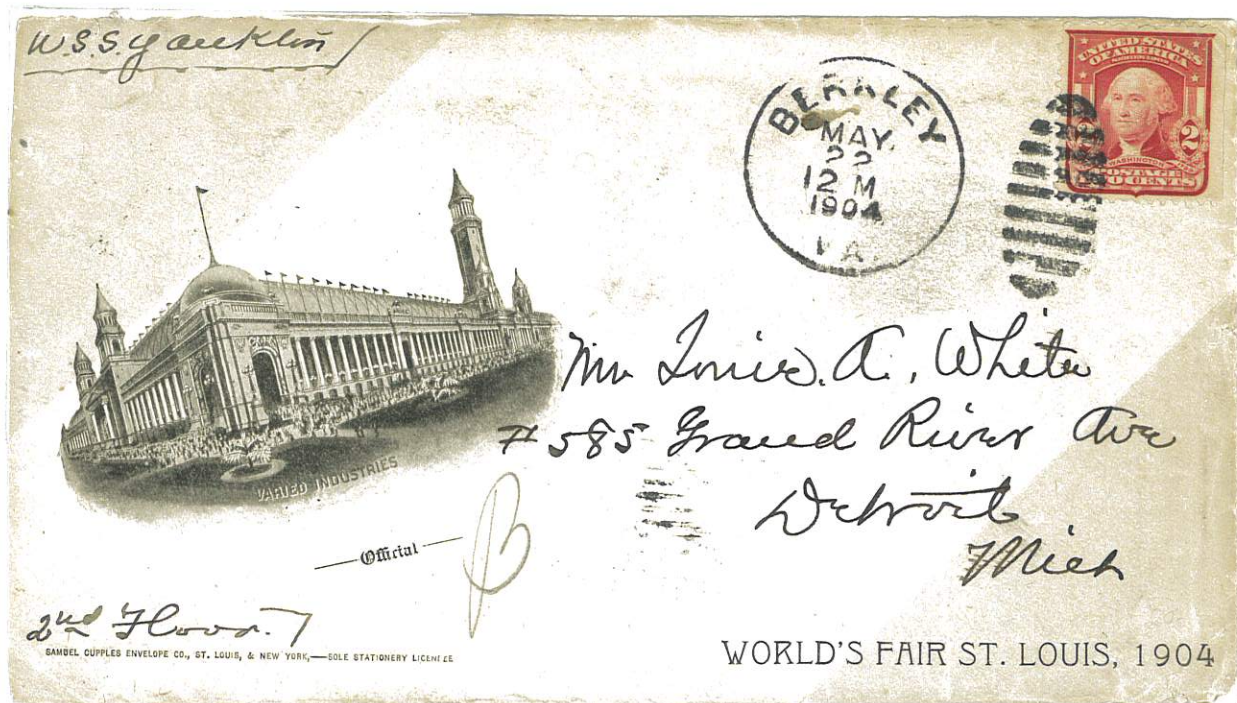 U.S.S. Franklin
BERKLEY
MAY.
22
12 M
1904
VA.
UNITED STATES
OF AMERICA
2
WASHINGTON
TWO CENTS
Mr Louis. A, White
#585 Grand River Ave
Detroit
Mich
VARIED INDUSTRIES
Official
B
2nd Floor.
SAMUEL CUPPLES ENVELOPE CO., ST. LOUIS, & NEW YORK,—SOLE STATIONERY LICENSEE
WORLD'S FAIR ST. LOUIS, 1904